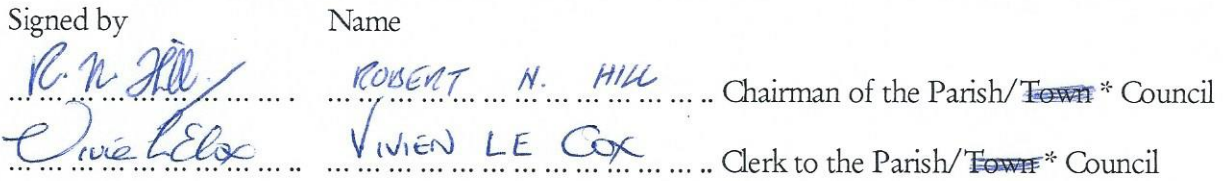 Signed by Name
R. N. Hill ROBERT N. HILL Chairman of the Parish/Town * Council
VIVIEN LE COX Clerk to the Parish/Town* Council